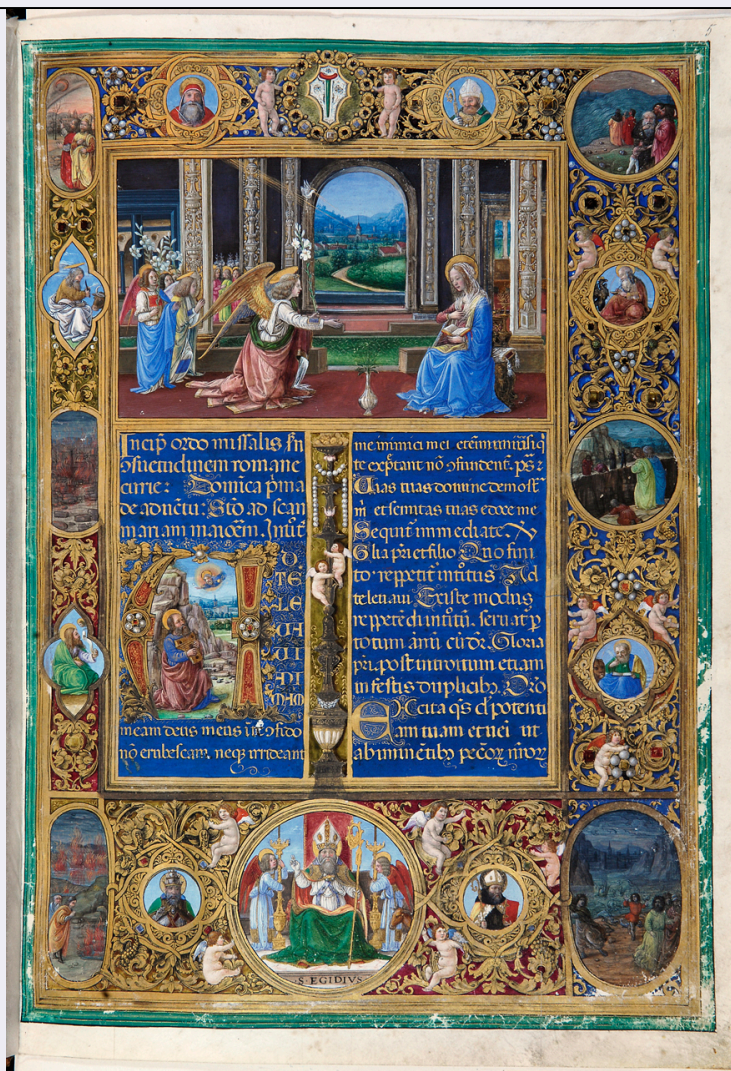 5
Incip ordo missalis
ꝯsuetudinem romane
curie: Domica pima
de aduetu: Sto ad scam
mariam maiorem. Introit
A D
TE
LE
UA
UI
NI
MAM
meam deus meus in te ꝯfido
no erubescam. neq irrideant
me inimici mei. etenim
te expectant no ꝯfundent. ps
Uias tuas domine demostr
m et semitas tuas edoce me
Sequit immediate. V
Glia pri et filio Quo fini
to reppetit introitus Ad
te leuaui Et iste modus
reppetedi introitu. seruat p
totum annu cu dr. Gloria
pri. post introitum etiam
in festis duplicib. Oro
Excita qs potenti
am tuam et ueni ut
ab iminetib peccor nror
S EGIDIVS